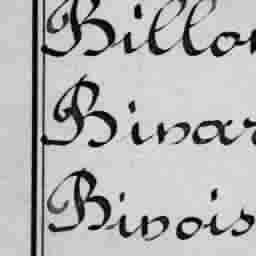 Billon
Binar
Binois